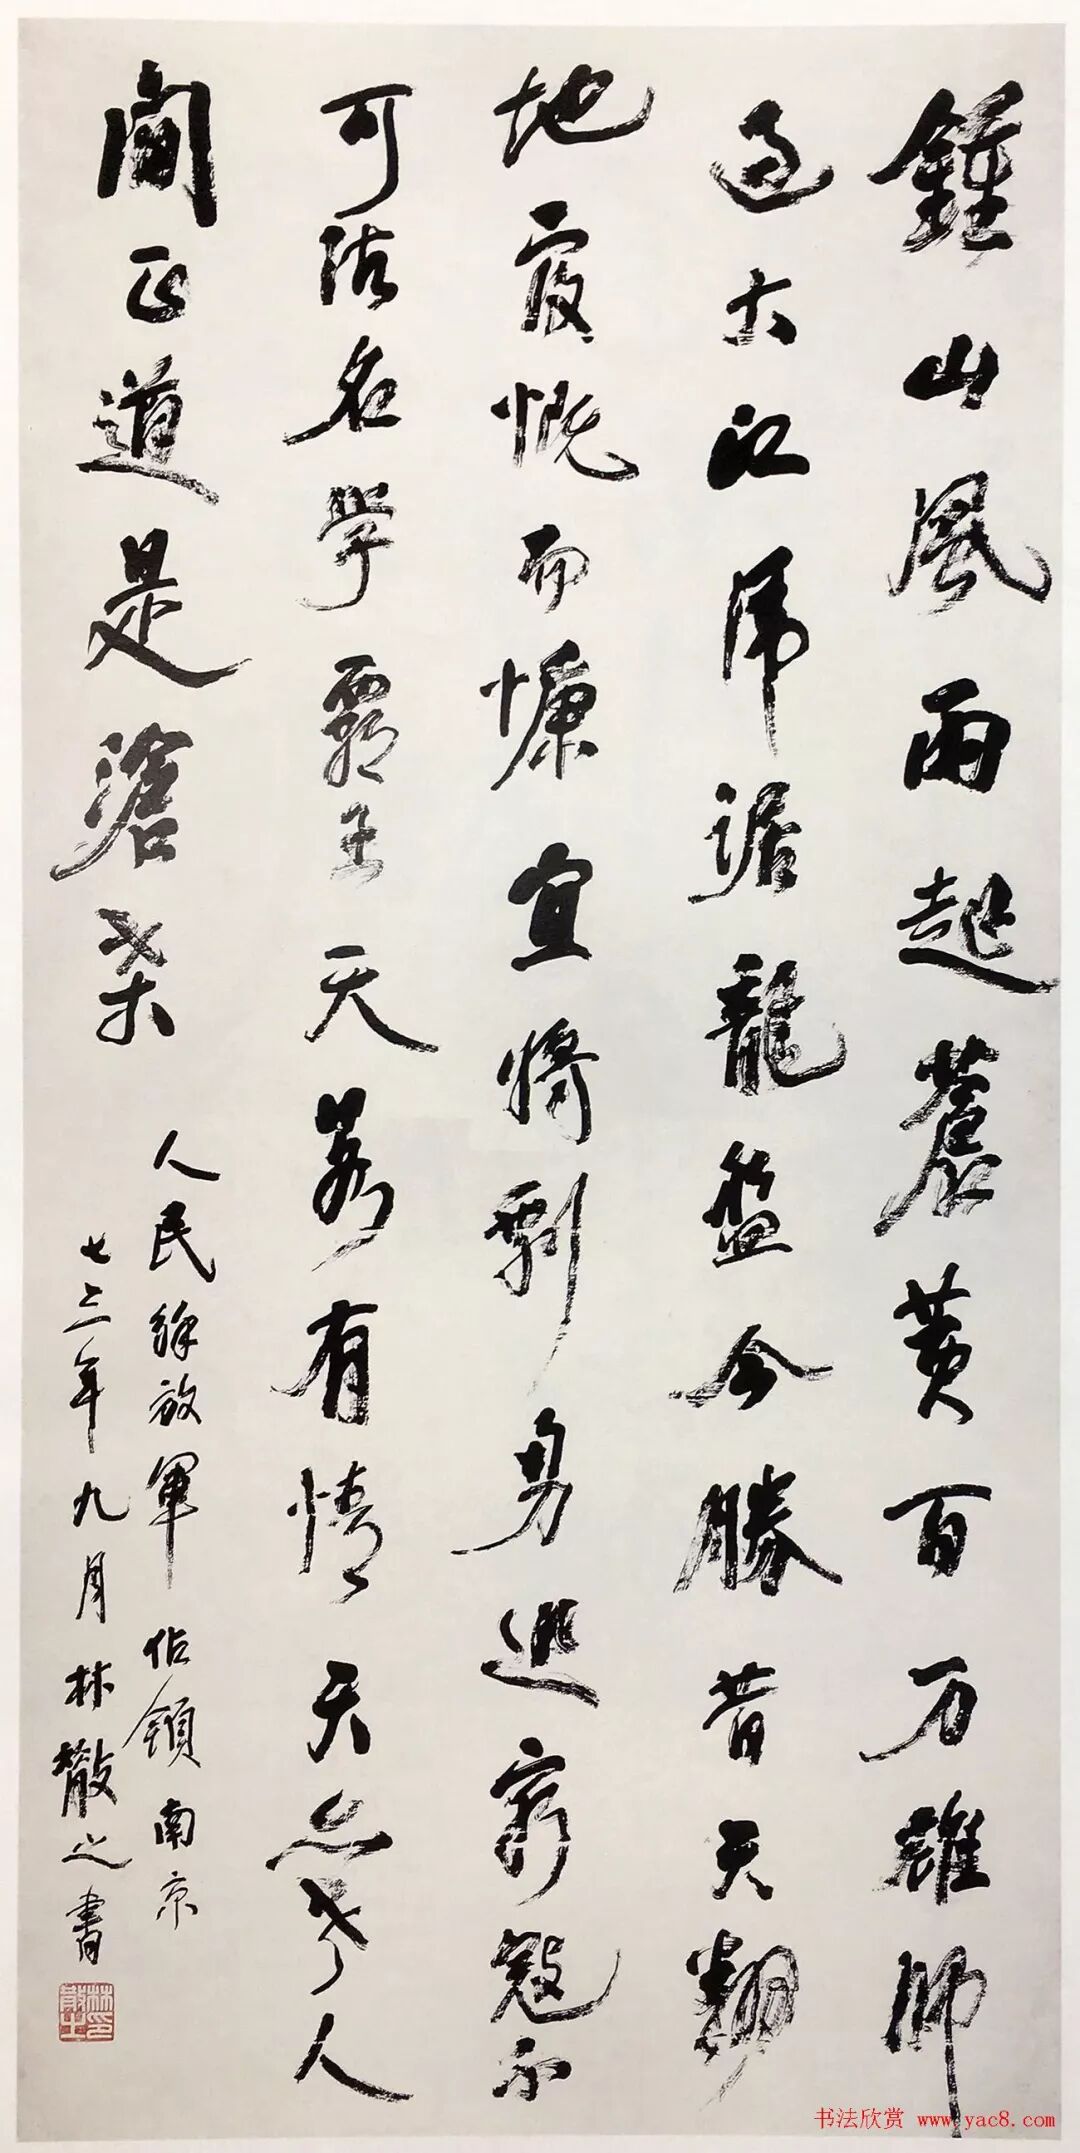 鍾山風雨起蒼黄百万雄師
過大江虎踞龍盤今勝昔天翻
地覆慨而慷宜將剩勇追窮寇不
可沽名學霸王天若有情天亦老人
間正道是滄桑
人民解放軍佔領南京
七三年九月林散之書
林印散之
书法欣赏 www.yac8.com